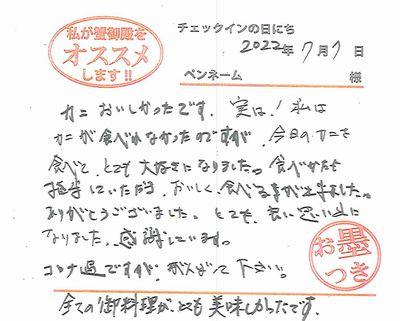 私が蟹御殿を
オススメ
します!!
チェックインの日にち
2022年 7月 7日
ペンネーム 様
カニ おいしかったです。実は!私は
カニが食べれなかったのですが、今日のカニを
食べて、とても大好きになりました。食べかたも
指導していた陗、おいしく食べる事が出来ました。
ありがとうございました。とても、良い思い出に
なりました。感謝しています。
コロナ過ですが、がんばって下さい。
全ての御料理が、とても美味しかったです。
お墨
つき